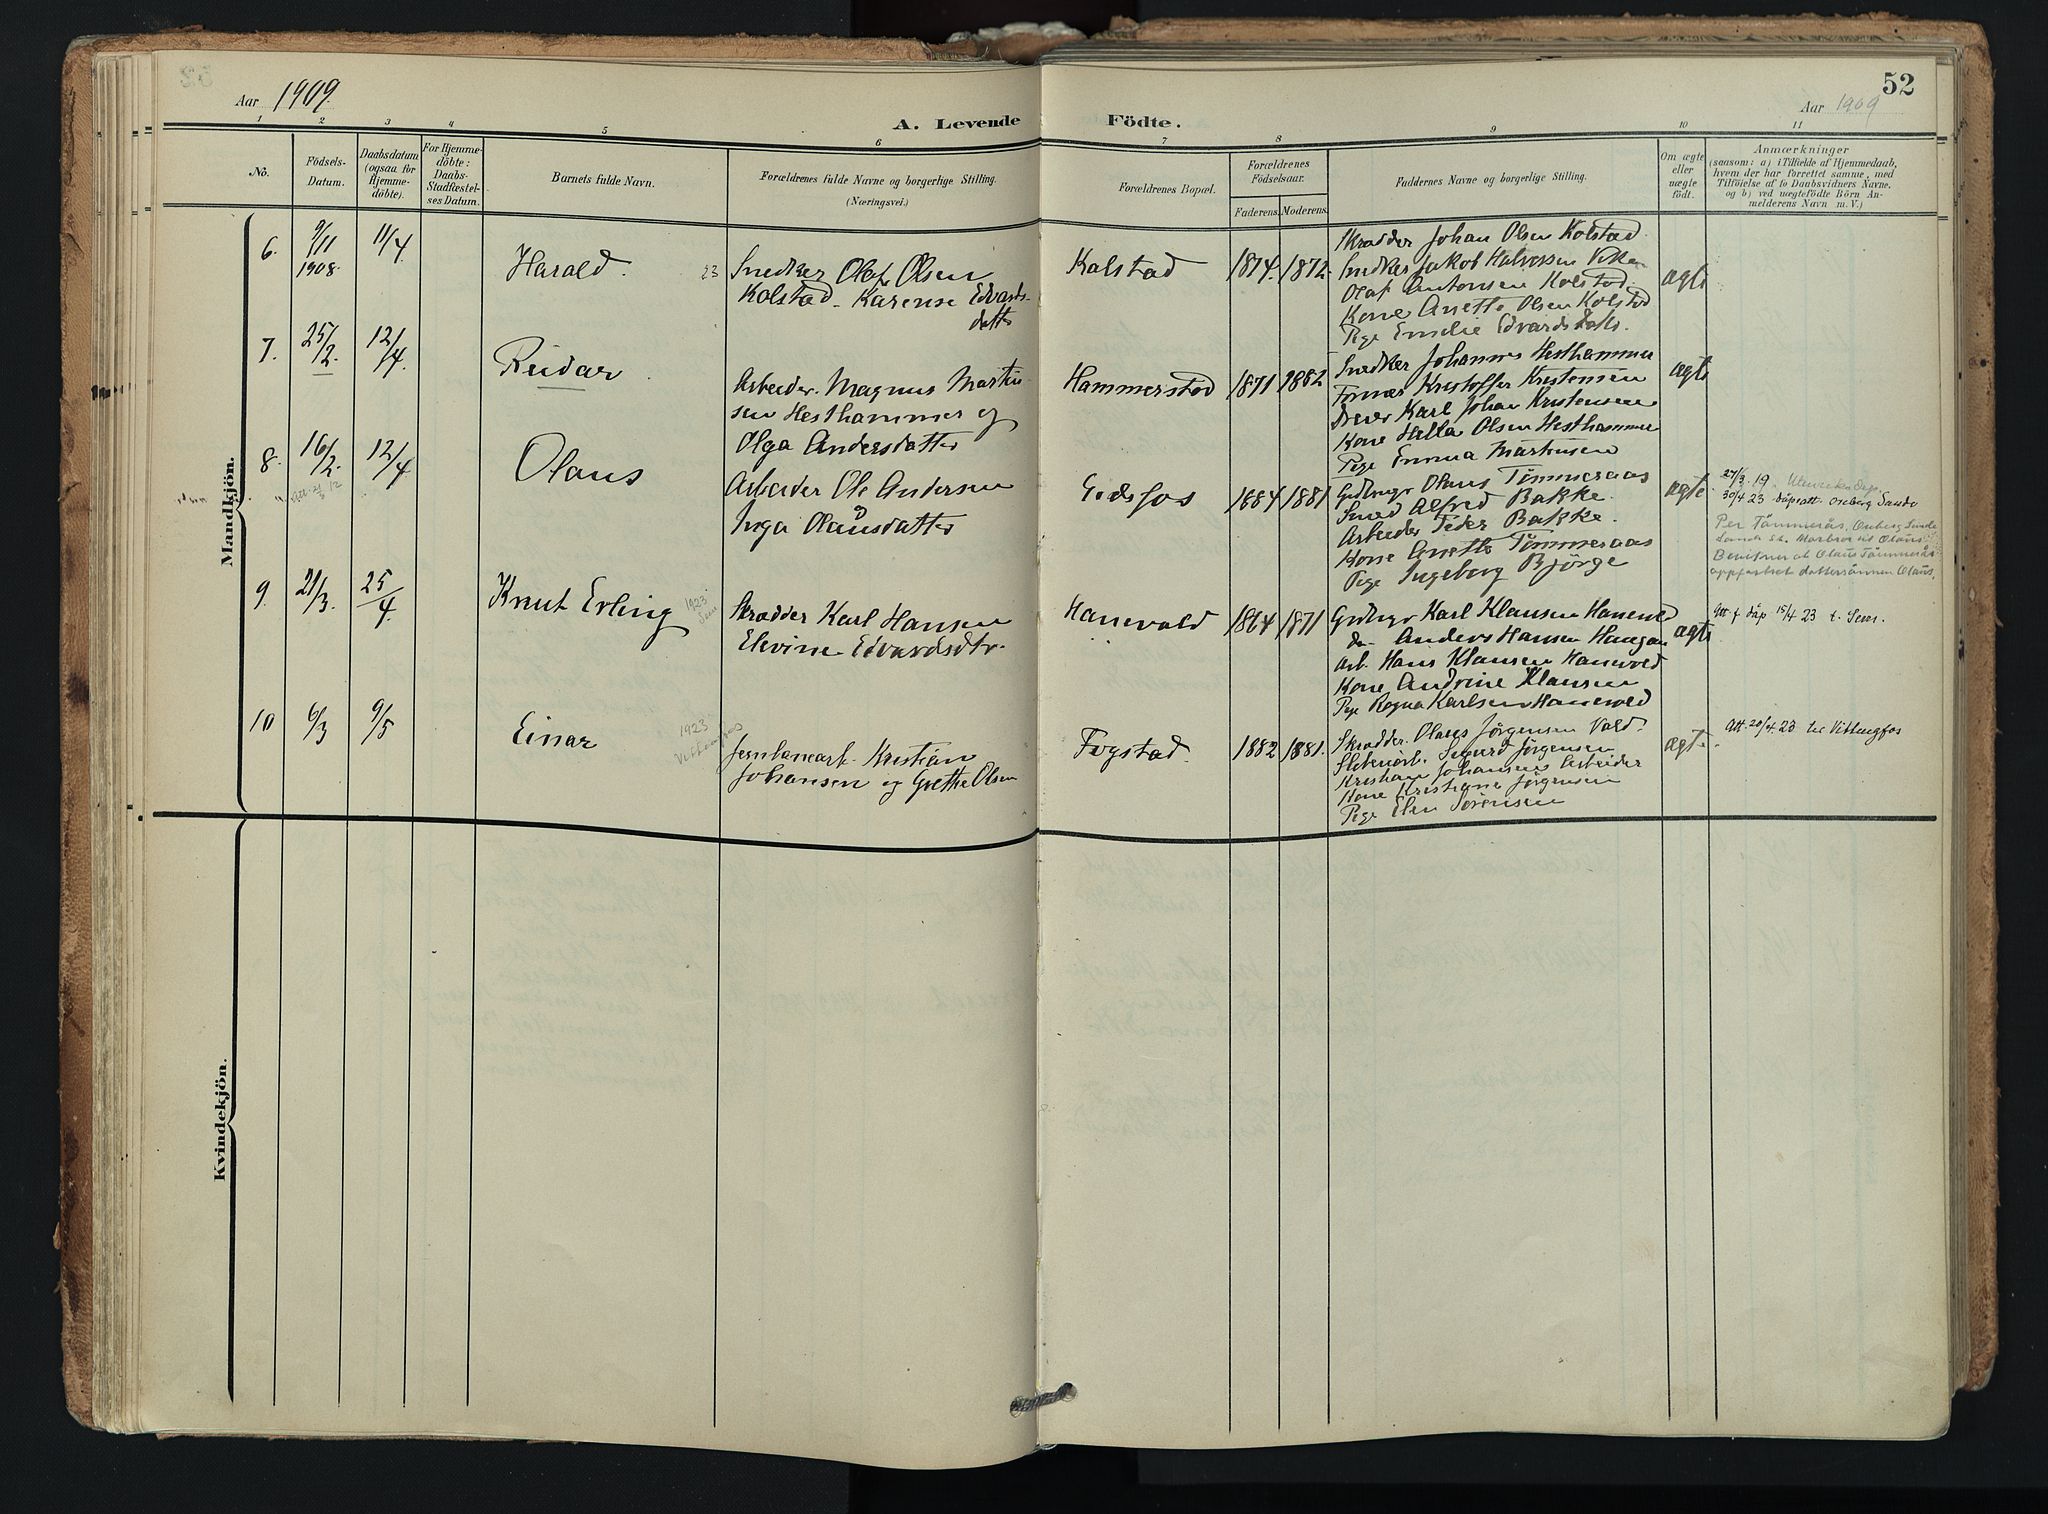 52
Aar 1909.
Aar 1909
A. Levende Födte.
1 2 3 4 5 6 7 8 9 10 11
No.
Födsels-
Datum.
Daabsdatum
(ogsaa for
Hjemme-
döbte).
For Hjemme-
döbte:
Daabs-
Stadfæstel-
ses Datum.
Barnets fulde Navn.
Forældrenes fulde Navne og borgerlige Stilling.
(Næringsvei.)
Forældrenes Bopæl.
Forældrenes
Födselsaar.
Faderens. Moderens.
Faddernes Navne og borgerlige Stilling.
Om ægte
eller
uægte
födt.
Anmærkninger
(saasom: a) i Tilfælde af Hjemmedaab,
hvem der har forrettet samme, med
Tilföielse af to Daabsvidners Navne,
og b) ved uægtefödte Börn An-
melderens Navn m. V.)
Mandkjön.
6. 9/11 1908. 11/4 Harald. 23
Snedker Olaf Olsen
Kolstad. Karense Edvards-
datter
Kolstad 1874. 1872.
Skrædder Johan Olsen Kolstad
Snedker Jakob Halvorsen
Olaf Antonsen Kolstad
Kone Anette Olsen Kolstad
Pige Emilie Edvardsdatter.
ægte
7. 25/2. 12/4. Reidar
Arbeider. Magnus Martin-
sen Hesthammer og
Olga Andersdatter
Hammerstad 1871 1882
Snedker Johannes Hesthammer
Kristoffer Kristensen
Karl Johan Kristensen
Kone Olsen Hesthammer
Pige Emma Martinsen
ægte
8. 16/2. 12/4 Olaus
Arbeider Ole Andersen
Inga Olausdatter
Godsfos 1884 1881
Olaus Tömmeraas
Smed Alfred Bakke.
Arbeider Peder Bakke.
Kone Anette Tömmeraas
Pige Ingeborg Bjørge
ægte
27/3. 19.
30/4 23 dåpsatt. Oseberg Sande
Per Tåmmerås, Oseberg Sande
Olaus
Bevitner at Olaus Tåmmerås
oppfostret dattersønnen Olaus.
9. 21/3. 25/4. Knut Erling 1923
Skrædder Karl Hansen
Elevine Edvardsdtr.
Hanevold 1864 1871
Karl Klausen
do Anders Hansen Haugan
Arb. Hans Klausen Hanevold
Kone Andrine Klausen
Pige Ragna Karlsen Hanevold
ægte
Att. f. dåp 15/4 23 t. Sem.
10 6/3 9/5 Einar 1923
Jernbanearb. Kristian
Johansen og Grethe Olsen
Fogstad. 1882 1881.
Skrædder. Olaus Jørgensen Vold.
Sigurd Jørgensen
Kristian Johansen Arbeider
Kone Kristiane Jørgensen
Pige Elen Sørensen
ægte.
Att. 20/4 23 til Vittingfos
Kvindekjön.